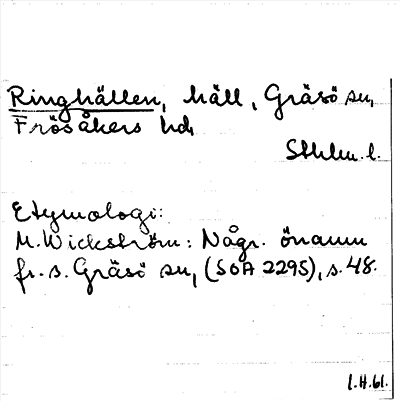 Ringhällen, häll, Gräsö sn,
Frösåkers hd,
Sthlm. l.
Etymologi:
M. Wickström: Någr. önamn
fr. s. Gräsö sn, (SOA 2295), s. 48.
I.H. 61.